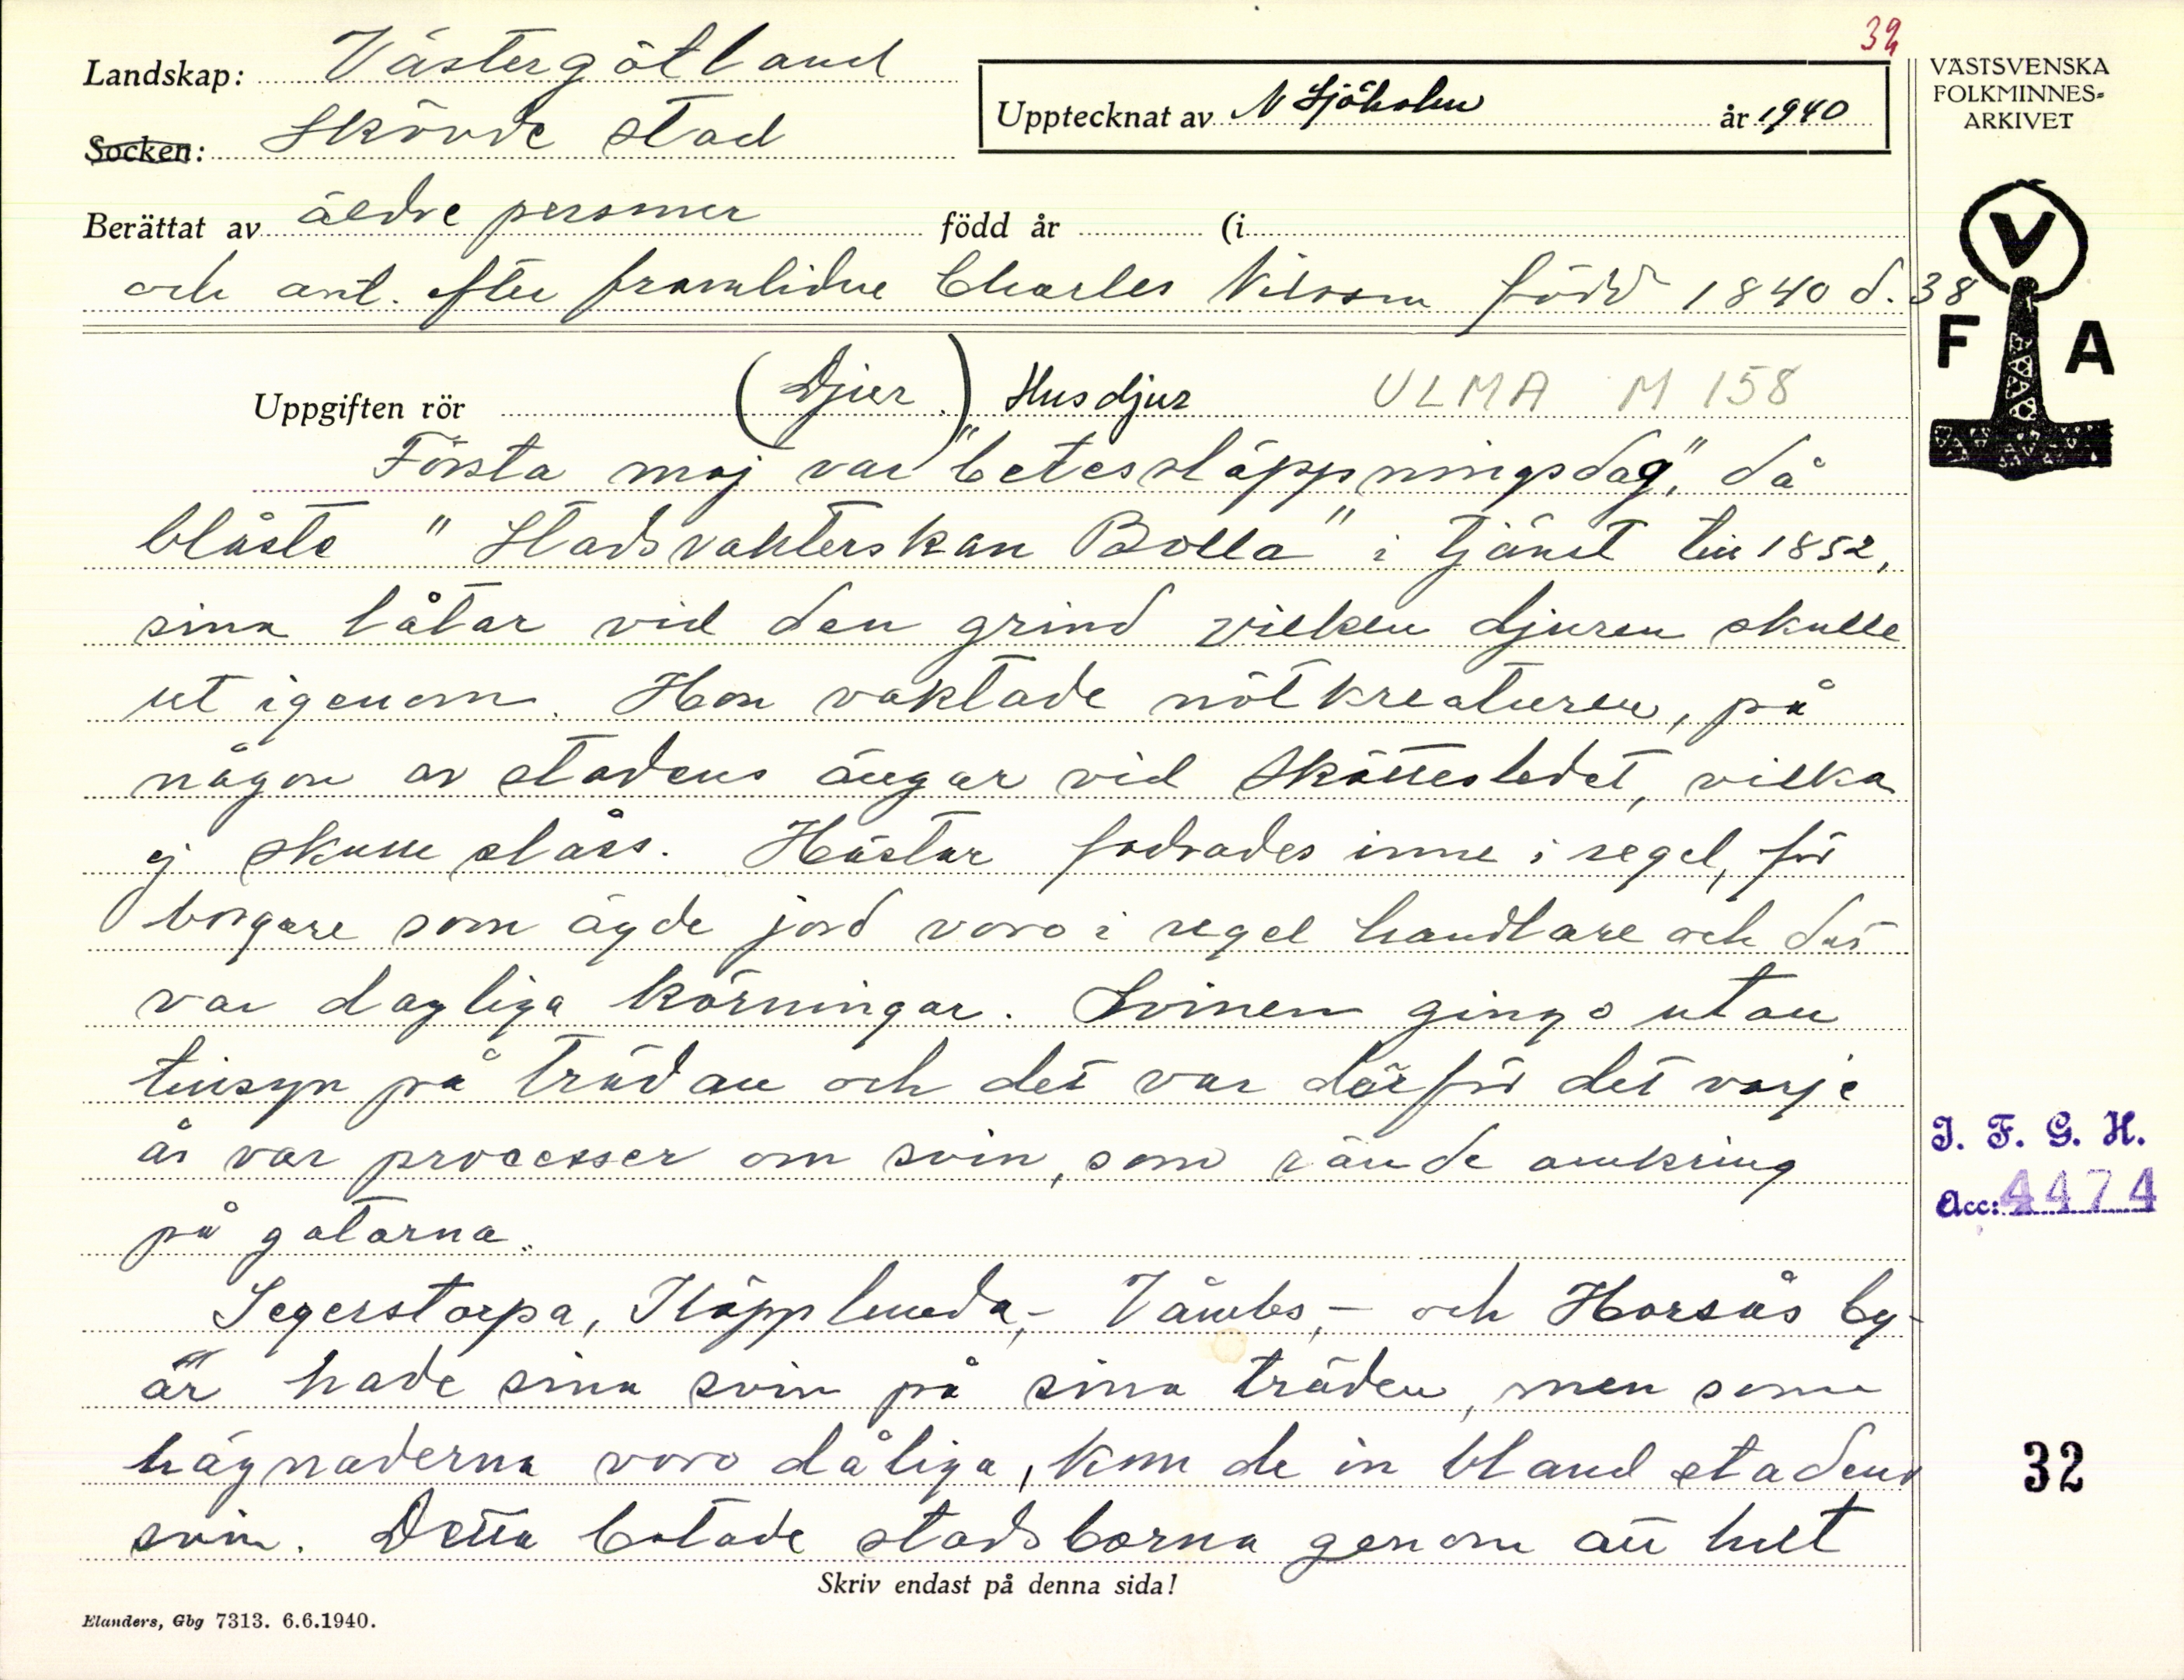 32
Landskap: Västergötland
Socken: Skövde stad
Upptecknat av N Sjöholm år 1940
VÄSTSVENSKA
FOLKMINNES-
ARKIVET
Berättat av äldre personer född år (i
och ant. efter framlidne Charles Nilsson född 1840 d. 38
V
F A
Uppgiften rör (Djur.) Husdjur ULMA M 158
Första maj var "betessläppningsdag", då
blåste "Stadsvakterskan Bolla" i tjänst till 1852,
sina låtar vid den grind vilken djuren skulle
ut igenom. Hon vaktade nötkreaturen, på
någon av stadens ängar vid Skättesledet, vilka
ej skulle slåss. Hästar fodrades inne i regel, för
borgare som ägde jord voro i regel handlare och det
var dagliga körningar. Svinen gingo utan
tillsyn på trädan och det var därför det varje
år var processer om svin, som rände omkring
på gatorna.
Segerstorpa, Käpplunda,- Våmbs,- och Horsås by-
är hade sina svin på sina träden, men som
hägnaderna voro dåliga, kom de in bland stadens
svin. Detta botade stadsborna genom att helt
Skriv endast på denna sida!
Elanders, Gbg 7313. 6.6.1940.
I. F. G. H.
Acc: 4474
32